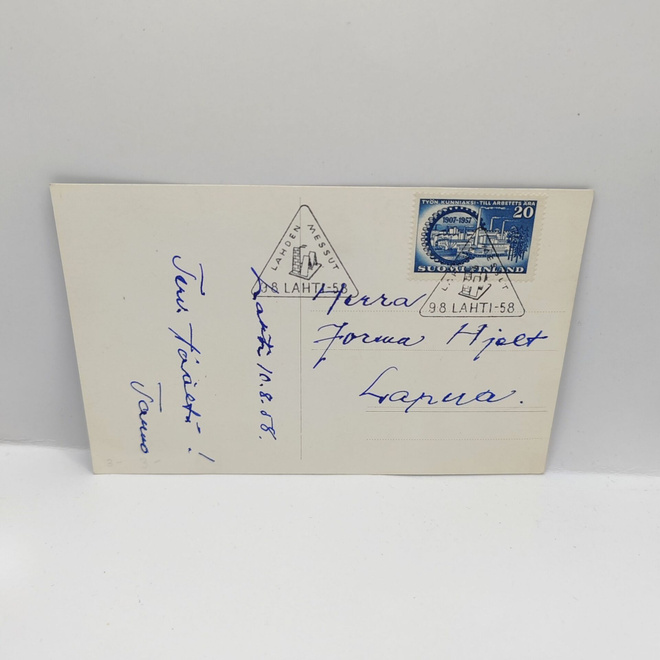 LAHDEN MESSUT
9.8 LAHTI-58
TYÖN KUNNIAKSI - TILL ARBETETS ÄRA
1907-1957
20
SUOMI FINLAND
9.8 LAHTI-58
Herra
Jorma Hjelt
Lapua.
Lahti 10.8.58.
Terv.